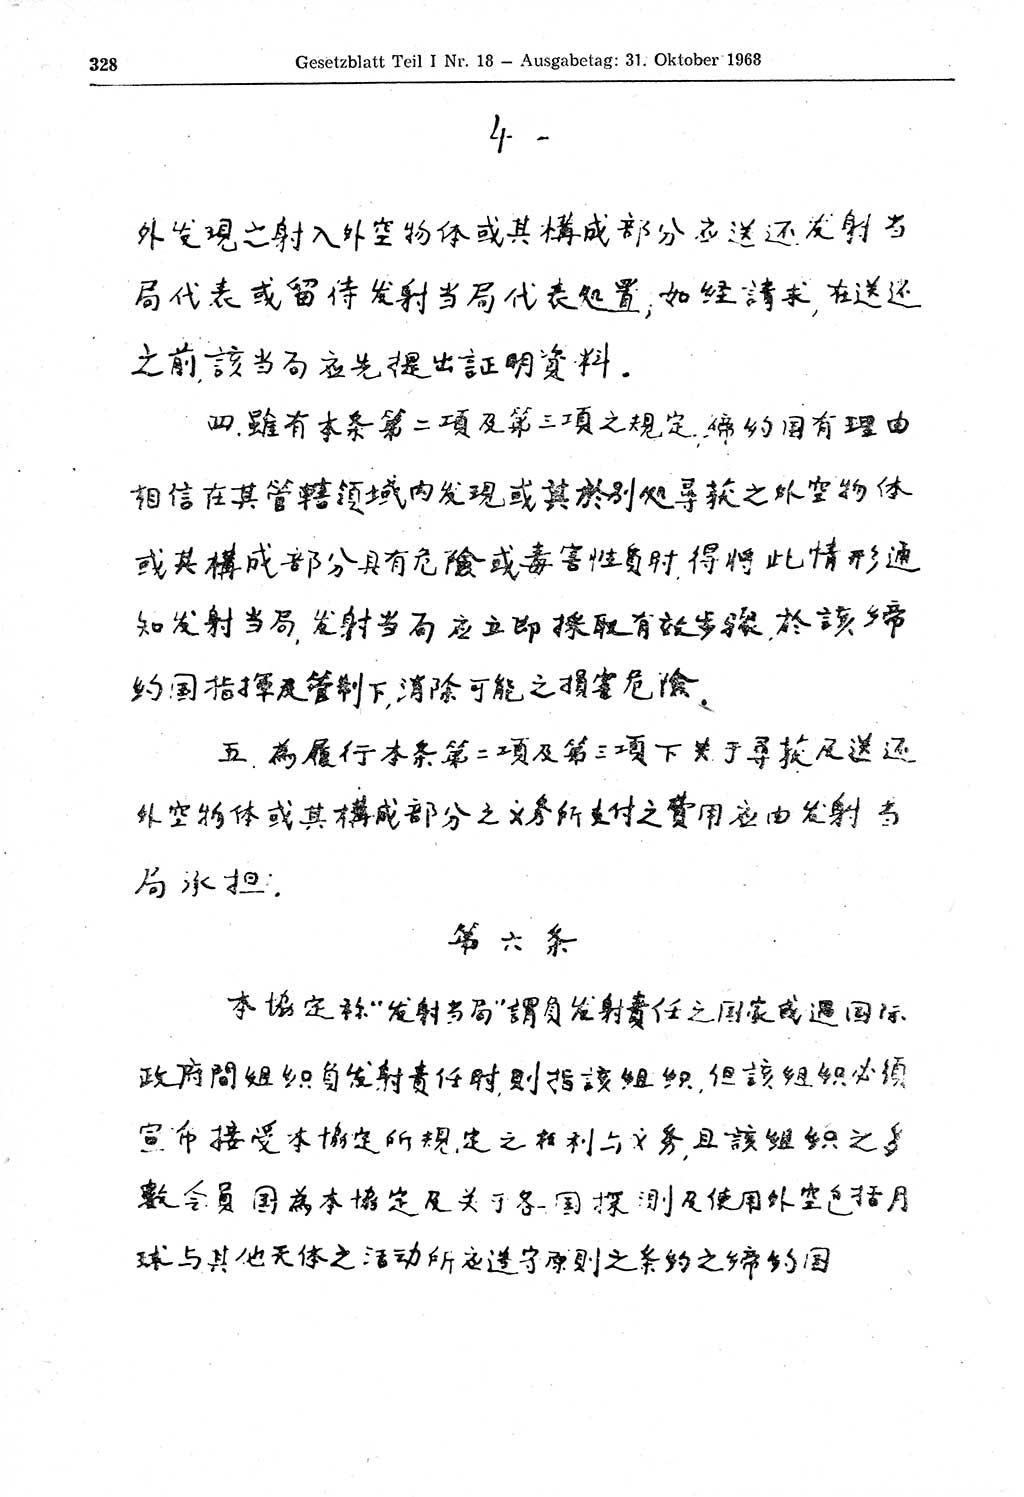 328
Gesetzblatt Teil I Nr. 18 – Ausgabetag: 31. Oktober 1968
4 -
外发現之射入外空物体或其構成部分应送还发射当
局代表或留待发射当局代表处置;如經請求,在送还
之前,該当局应先提出証明資料.
四.雖有本条第二項及第三項之規定,締約国有理由
相信在其管轄領域内发現或其於別处尋获之外空物体
或其構成部分具有危險或毒害性貭时,得将此情形通
知发射当局,发射当局应立即採取有效步骤,於該締
約国指揮及管制下,消除可能之損害危險.
五.為履行本条第二項及第三項下关于尋获及送还
外空物体或其構成部分之义务所支付之費用应由发射当
局承担.
第六条
本協定称"发射当局"謂負发射責任之国家或遇国际
政府間組织負发射責任时,則指該組织,但該組织必須
宣布接受本協定所規定之权利与义务,且該組织之多
數会員国為本協定及关于各国探測及使用外空包括月
球与其他天体之活动所应遵守原則之条約之締約国